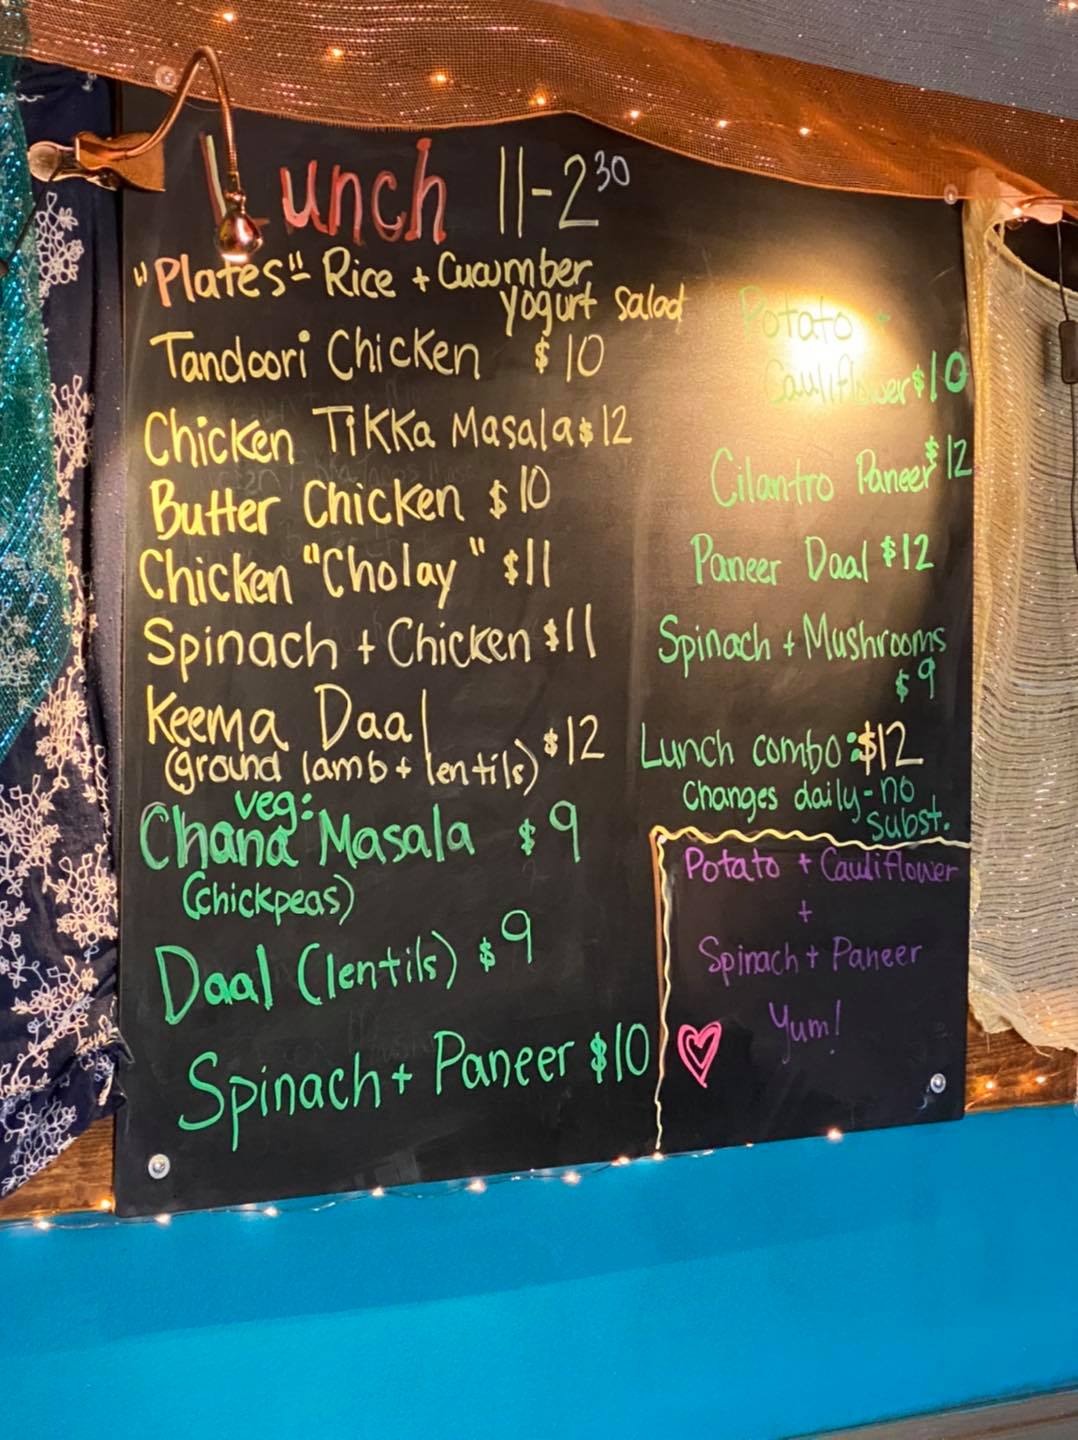 Lunch 11-2³⁰
"Plates" - Rice + Cucumber
yogurt salad
Tandoori Chicken $10
Chicken TiKKa Masala $12
Butter Chicken $10
Chicken "Cholay" $11
Spinach + Chicken $11
Keema Daal
(ground lamb + lentils) $12
veg:
Chana Masala $9
(chickpeas)
Daal (lentils) $9
Spinach + Paneer $10
Potato +
Cauliflower $10
Cilantro Paneer $12
Paneer Daal $12
Spinach + Mushrooms
$9
Lunch combo: $12
Changes daily - no
subst.
Potato + Cauliflower
+
Spinach + Paneer
Yum!